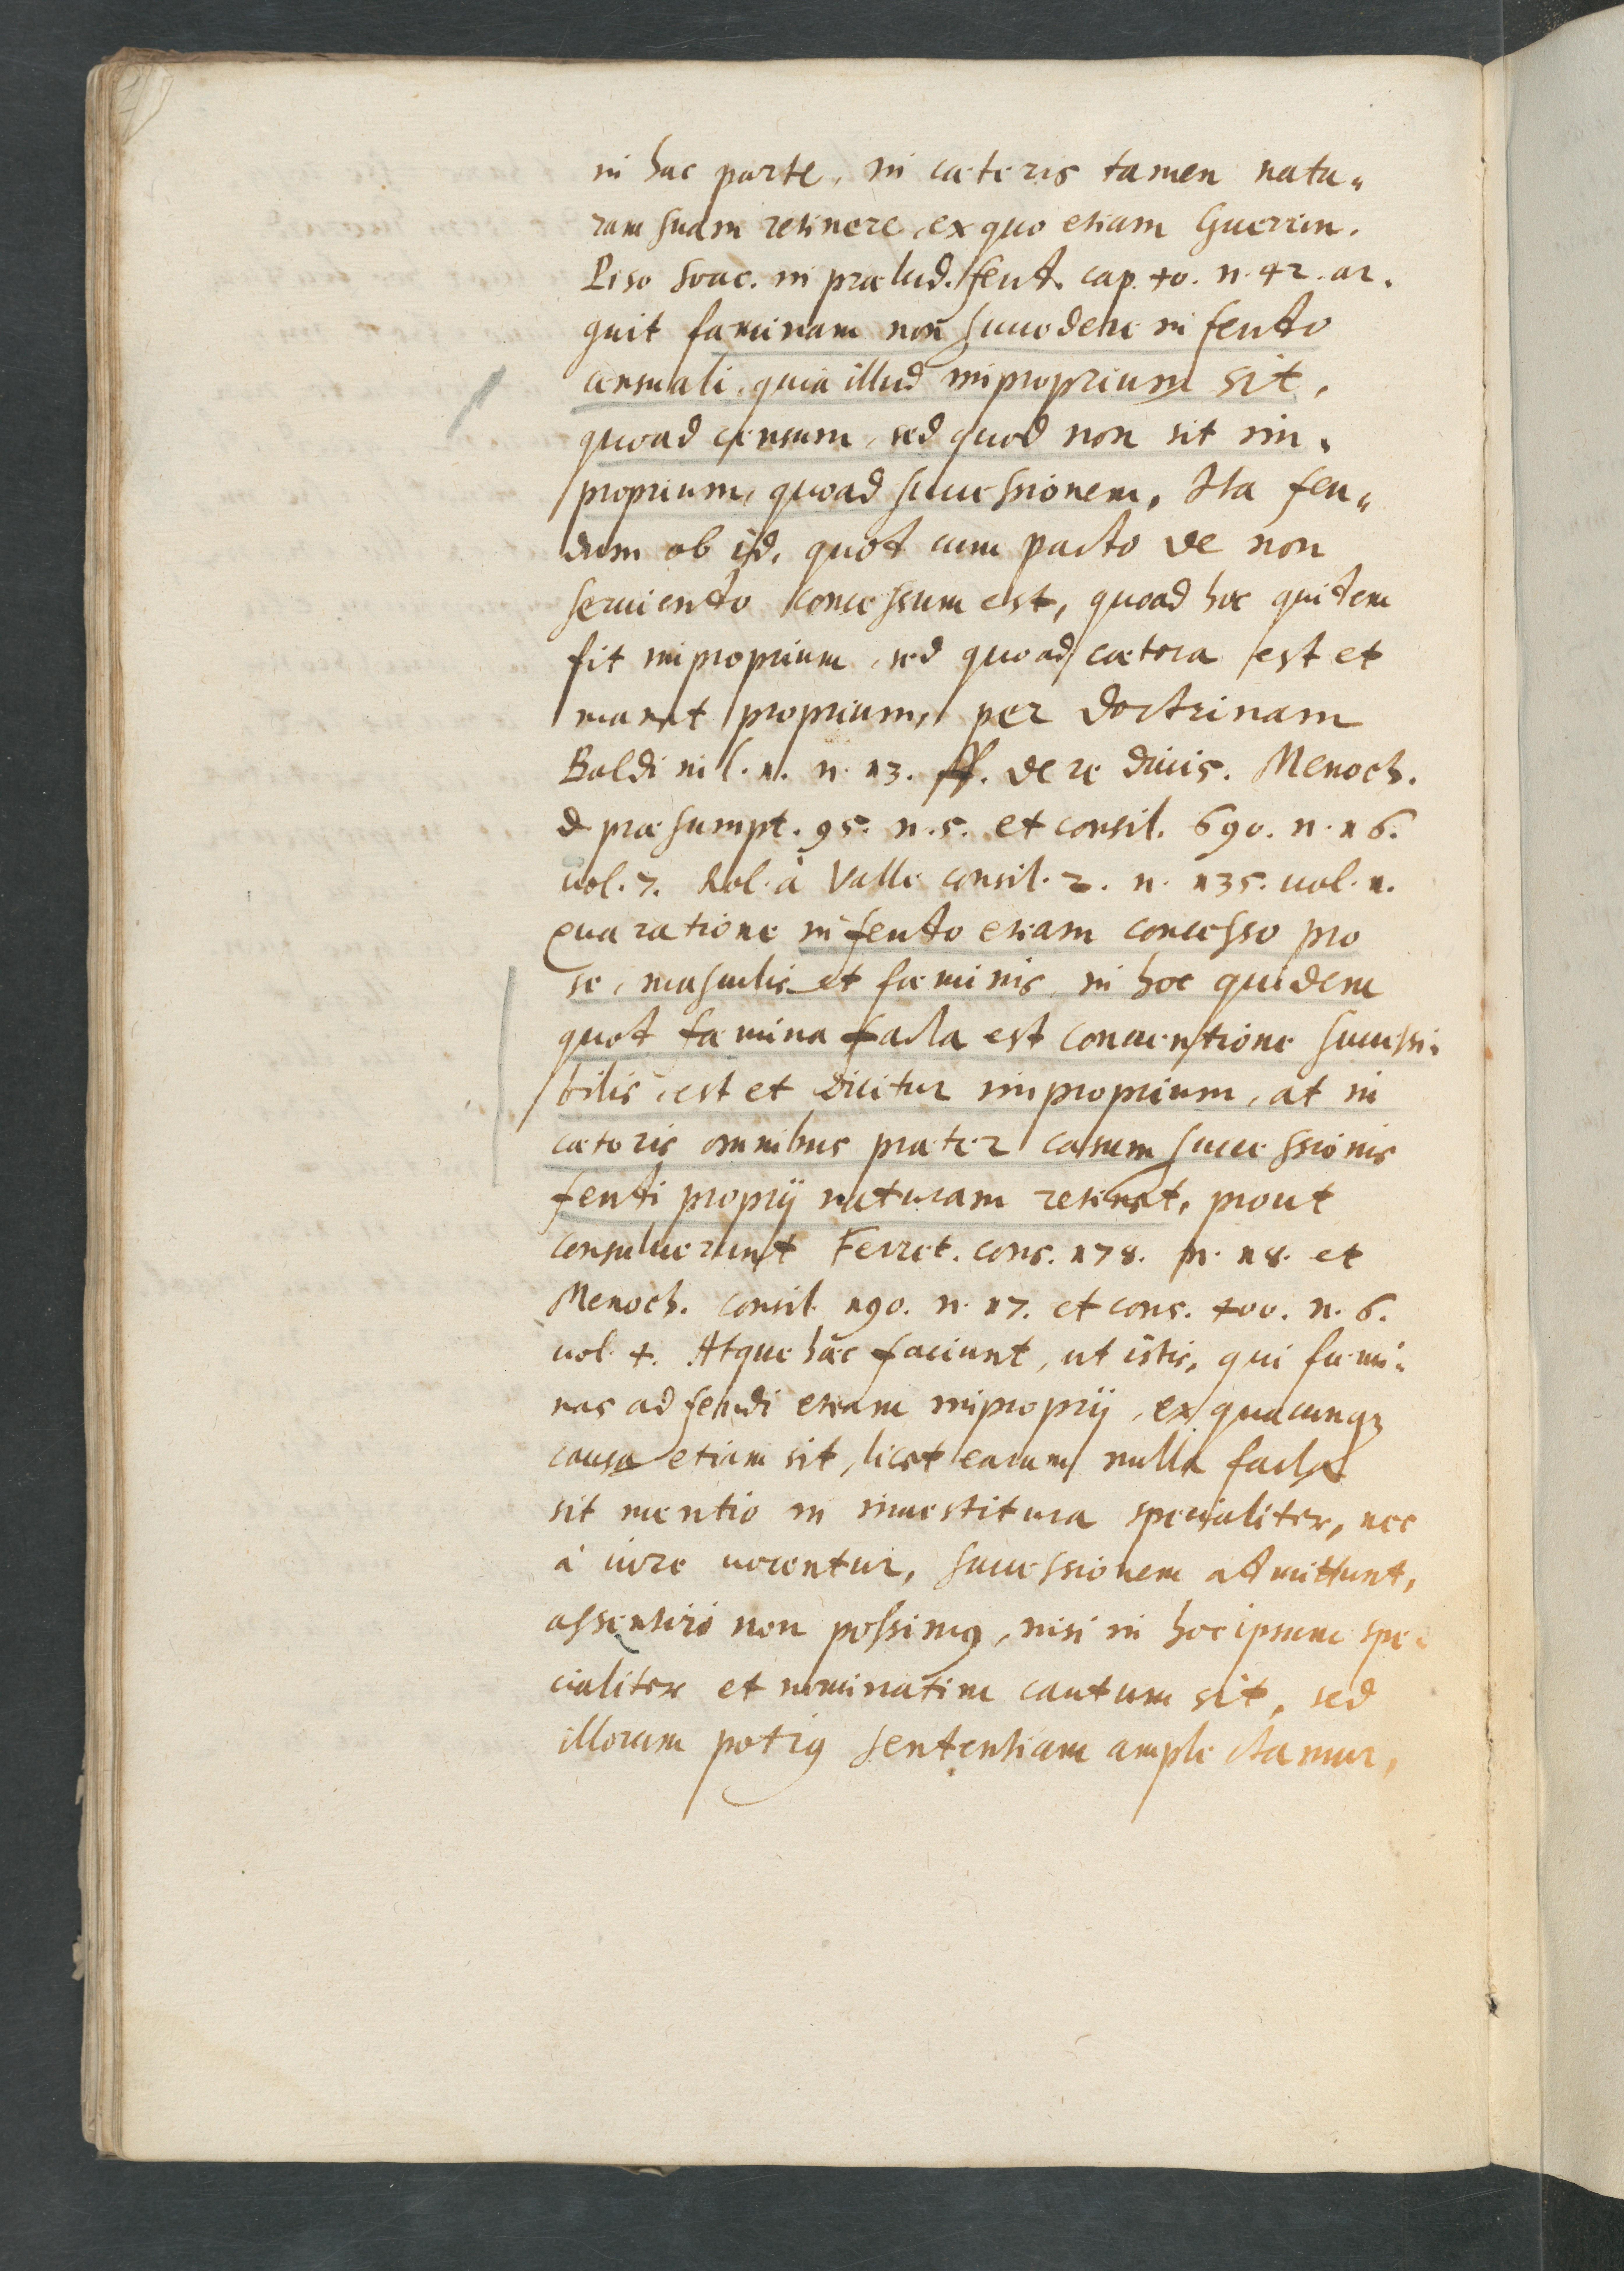 in hac parte, in cæteris tamen natu„
ram suam retinere, ex quo etiam Guerrin.
Piso Soac. in prælud. feud. cap. 40. n. 42. ar.
guit fæminam non succedere in feudo
censuali, quia illud improprium sit,
quoad censum, sed quod non sit im„
proprium, quoad successionem, Ita feu„
dum ob id, quod cum pacto de non
seruiendo concessum est, quoad hoc quidem
fit improprium, sed quoad cætera est et
manet proprium, per doctrinam
Baldi in l. 1. n. 13. ff. de re diuis. Menoch.
d præsumpt. 95. n. 5. et consil. 690. n. 16.
uol. 7. Rol. à Valle consil. 2. n. 135. uol. 1.
Qua ratione in feudo etiam concesso pro
se, masculis et fæminis, in hoc quidem
quod fæmina facta est conuentione successi„
bilis, est et dicitur improprium, at in
cæteris omnibus præter casum successionis
feudi proprij naturam retinet, prout
consuluerunt Ferret. cons. 178. n. 18. et
Menoch. consil. 190. n. 17. et cons. 400. n. 6.
uol. 4. Atque hæc faciunt, ut istis, qui fæmi„
nas ad feudi etiam improprij, ex quacunqꝫ
causa etiam sit, licet earum nulla facta
sit mentio in inuestitura specialiter, nec
à iure uocentur, successionem admittunt,
assentiri non possimꝰ, nisi in hoc ipsum spe„
cialiter et nominatim cautum sit, sed
illorum potiꝰ sententiam amplectamur,